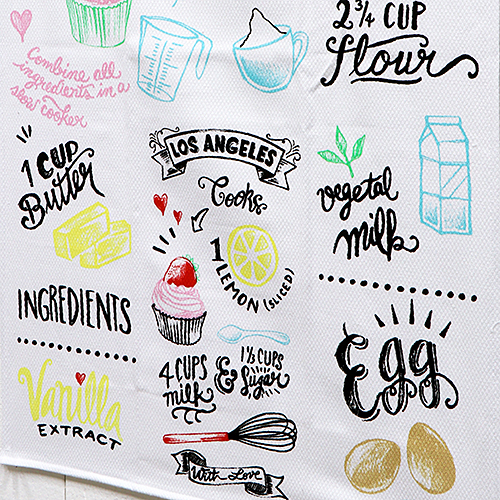 Combine all
ingredients in a
slow cooker
2 3/4 CUP
Flour
1 CUP
Butter
LOS ANGELES
Cooks
vegetal
milk
1
LEMON (SLICED)
INGREDIENTS
4 CUPS
milk
&
1 1/2 CUPS
Sugar
Egg
Vanilla
EXTRACT
With Love